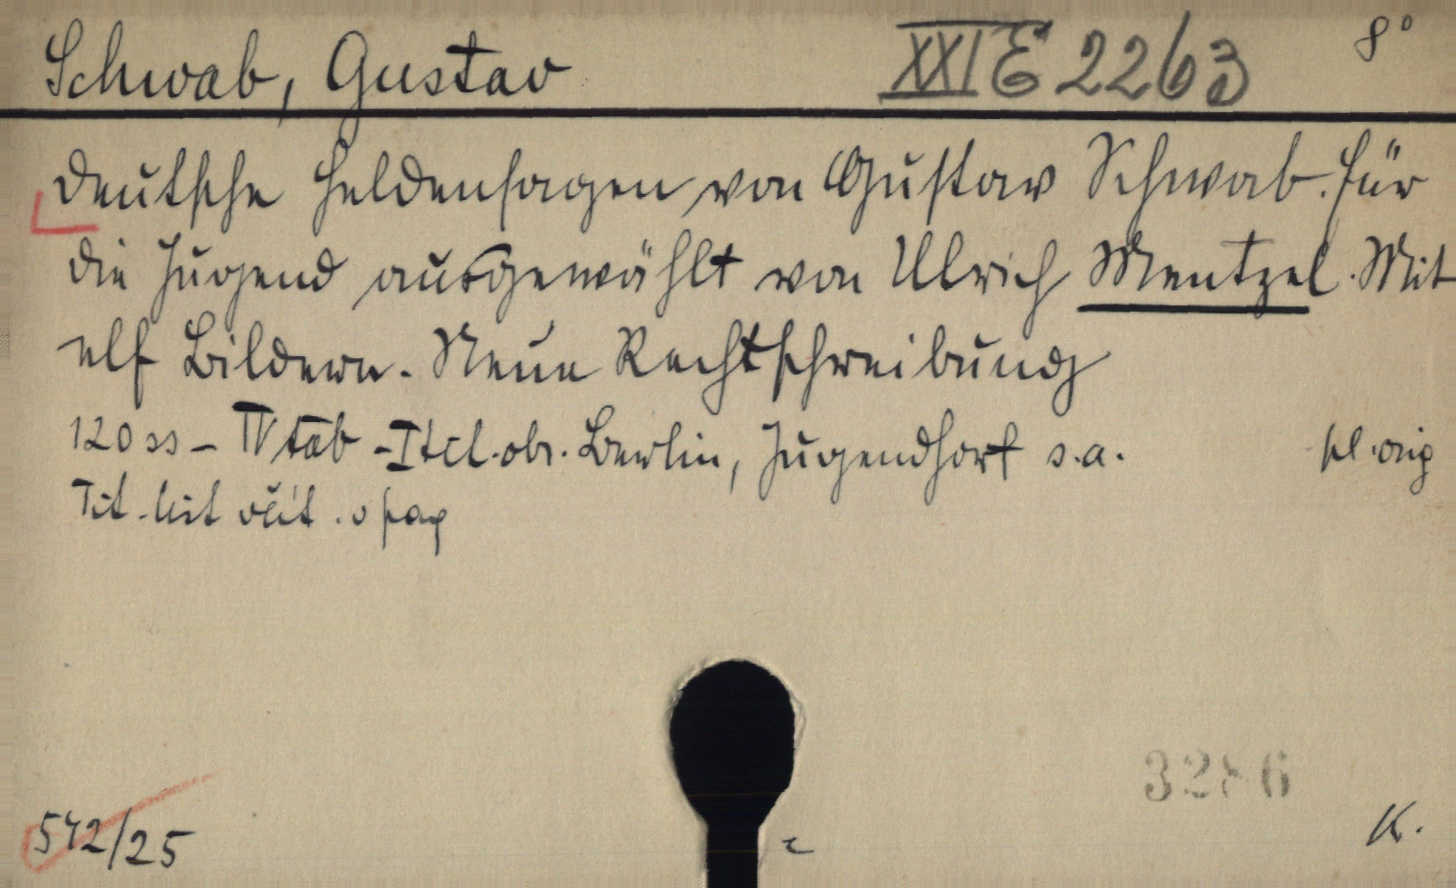 Schwab, Gustav XXI E 2263 8°
Deutsche Heldensagen von Gustav Schwab. Für
die Jugend ausgewählt von Ulrich Mentzel. Mit
elf Bildern. Neue Rechtschreibung
120 ss – IV tab – I tit. obr. Berlin, Jugendhort s.a. pl. orig
Tit. list včít. v pag
542/25
3286
K.